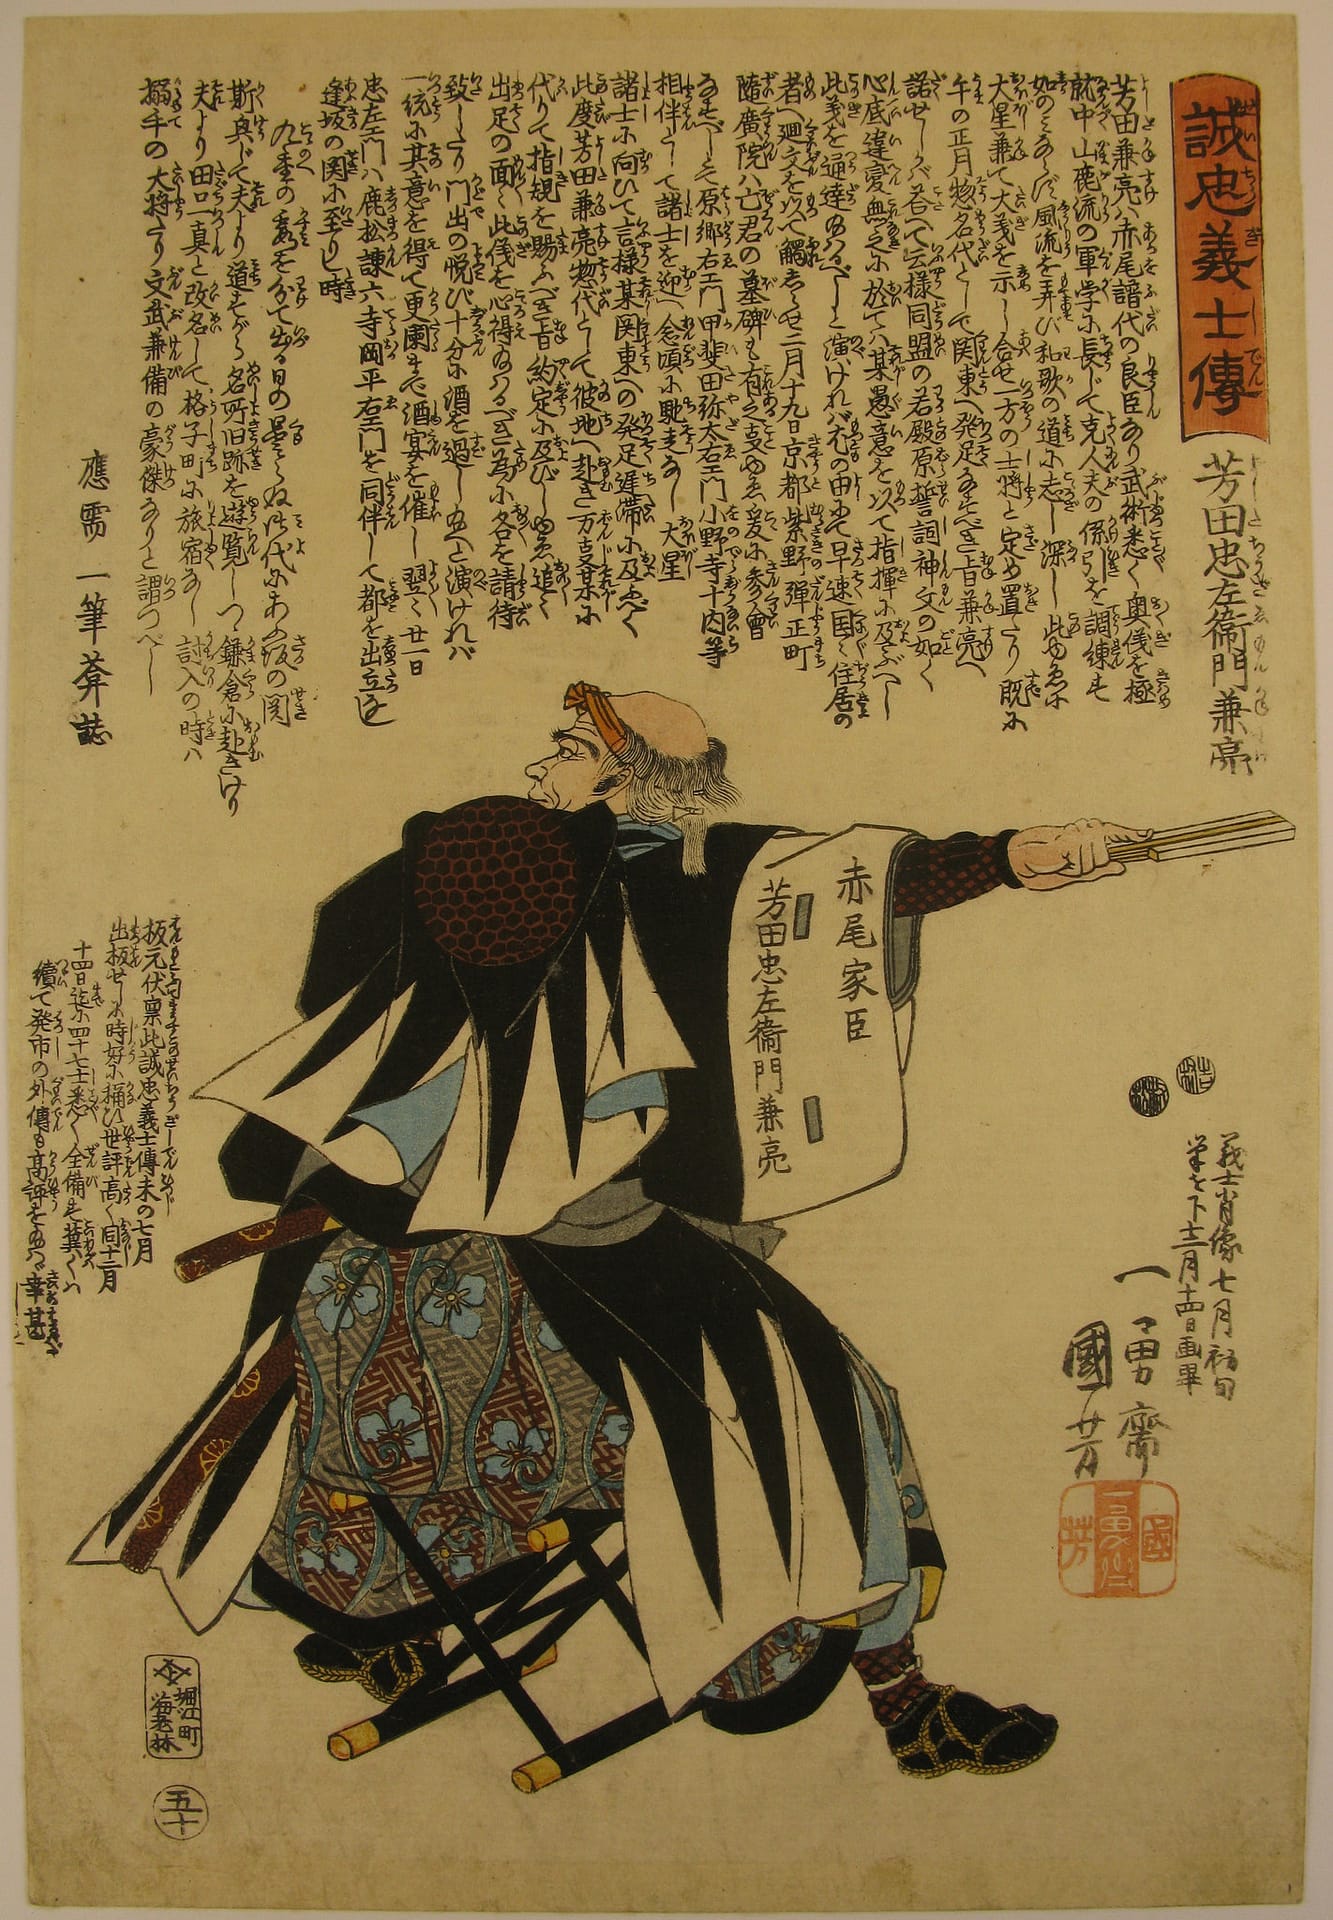 誠忠義士傳
芳田忠左衛門兼亮
芳田兼亮ハ赤尾譜代の良臣なり武術悉く奥儀を極
就中山鹿流の軍学に長じて克人夫の係引を調練す
如のミならバ風流を弄び和歌の道に志し深し此ゆゑに
大星兼て大義を示し合せ一方の士将と定め置たり既に
午の正月惣名代として関東へ発足なすべき旨兼亮へ
諾せしかバ答へて云様同盟の若殿原誓詞神文の如く
心底違変無之に於てハ某愚意を以て指揮に及ぶべし
此義を通達ゆハるべしと演けれバ尤の由にて早速国々住居の
者へ廻文を以て觸しらせ二月十九日京都紫野弾正町
隨廣院ハ亡君の墓碑も有之支ゆゑ爰に参會
なすべしとて原郷右エ門甲斐田弥太右エ門小野寺十内等
相伴として諸士を迎へ念頃に馳走なし大星
諸士に向ひて言様某関東への発足遅滞に及べく
此度芳田兼亮惣代として彼地へ赴き万支某に
代りて指規を賜ふべき旨約定に及びしゆゑ追々
出足の面々此儀を心得ゐハるべき為に各を請待
致したり門出の悦び十分に酒を過し ゐへと演けれバ
一統に其意を得て更闌まで酒宴を催し翌々廿一日
忠左エ門ハ鹿松諫六寺岡平右エ門を同伴して都を出立し
逢坂の関に至りし時
九重の 春を分て出る日の 曇らぬ御代にあふ坂の関
斯奥じて夫より道すがら名所旧跡を遊覧しつゝ鎌倉に赴きけり
夫より田口一真と改名して格子町に旅宿なし討入の時ハ
搦手の大将たり文武兼備の豪傑なりと謂つべし
應需 一筆菴誌
赤尾家臣
芳田忠左衛門兼亮
板元伏禀此誠忠義士傳未の七月
出板せしに時好に稱ひ世評高く同十二月
十四日迄に四十七士悉く全備す冀くハ
續て発市の外傳も高評をゐハゞ幸甚
義士肖像七月初旬
筆を下十二月十四日画畢
一勇齋
國芳
堀江町
海老林
五十